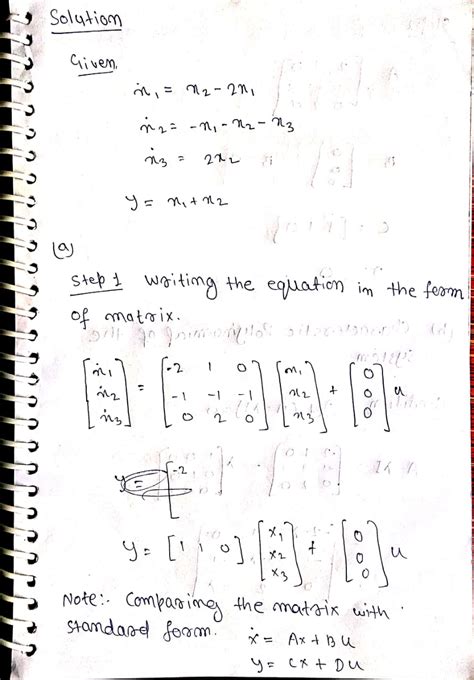 Solution
Given
ẋ₁ = x₂ - 2x₁
ẋ₂ = -x₁ - x₂ - x₃
ẋ₃ = 2x₂
y = x₁ + x₂
(a)
Step 1 Writing the equation in the form
of matrix.
[ẋ₁ ẋ₂ ẋ₃] = [-2 1 0; -1 -1 -1; 0 2 0] [x₁ x₂ x₃] + [0 0 0] u
y = [-2
y = [1 1 0] [x₁ x₂ x₃] + [0 0 0] u
Note:- Comparing the matrix with
standard form. ẋ = Ax + Bu
y = Cx + Du